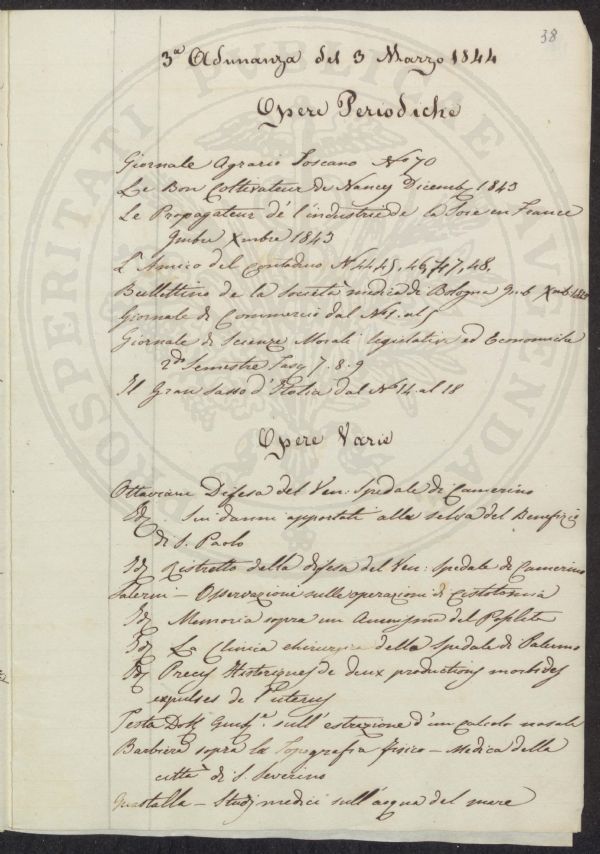 38
3ª Adunanza del 3 Marzo 1844
Opere Periodiche
Giornale Agrario Toscano Nº 70
Le Bon Coltivateur de Nancy Dicemb. 1843
Le Propagateur de l'industrie de la Soie en France
9mbre Xmbre 1843
L'Amico del contadino N 44.45, 46, 47, 48.
Bullettino de la Società medica di Bologna 9.b Xmb. 1843
Giornale di Commercio dal Nº 1. al 5
Giornale di Scienze Morali legislative ed Economiche
2do Semestre Fasc. 7. 8. 9
Il Gran Sasso d'Italia dal Nº 14. al 18
Opere Varie
Ottaviani Difesa del Ven: Spedale di Camerino
Id. Sui danni apportati alla selva del Benefizio
di S. Paolo
Id. Ristretto della difesa del Ven: Spedale di Camerino
Salemi - Osservazione sulle operazioni di Cistotomia
Id. Memoria sopra un Aneurisma del Poplite
Id. La Clinica chirurgica dello Spedale di Palermo
Id. Precis Historiques de deux productions morbides
expulses de l'uterus
Testa Dott. sull'estrazione d'un calcolo nasale
Barbiera sopra la Topografia fisico - Medica della
città di S. Severino
Guastalla - Studj medici sull'acqua del mare
PROSPERITATI PVBLICAE AVGENDAE